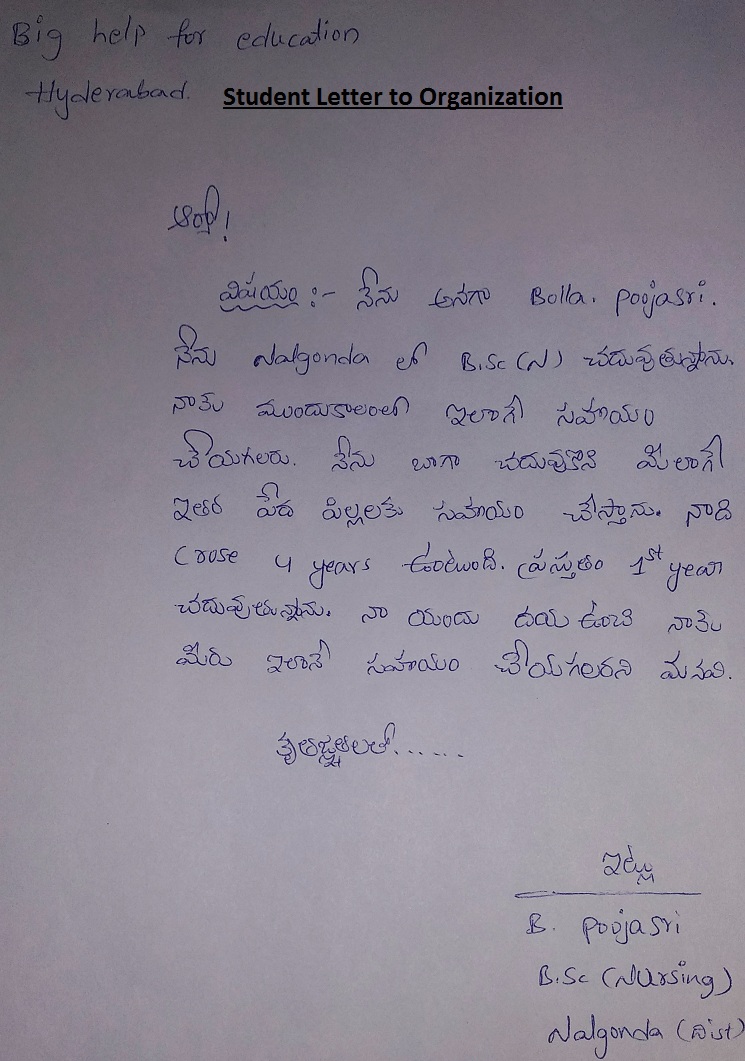 Big help for education
Hyderabad.
Student Letter to Organization
ఆర్యా!
విషయం :- నేను అనగా Bolla. poojasri.
నేను Nalgonda లో B.Sc (N) చదువుతున్నాను.
నాకు ముందుకాలంలో ఇలాగే సహాయం
చేయగలరు. నేను బాగా చదువుకొని మీలాగే
ఇతర పేద పిల్లలకు సహాయం చేస్తాను. నాది
Crose 4 years ఉంటుంది. ప్రస్తుతం 1st year
చదువుతున్నాను. నా యందు దయ ఉంచి నాకు
మీరు ఇలానే సహాయం చేయగలరని మనవి.
కృతజ్ఞతలతో......
ఇట్లు
B. poojasri
B.Sc (Nursing)
Nalgonda (Dist)